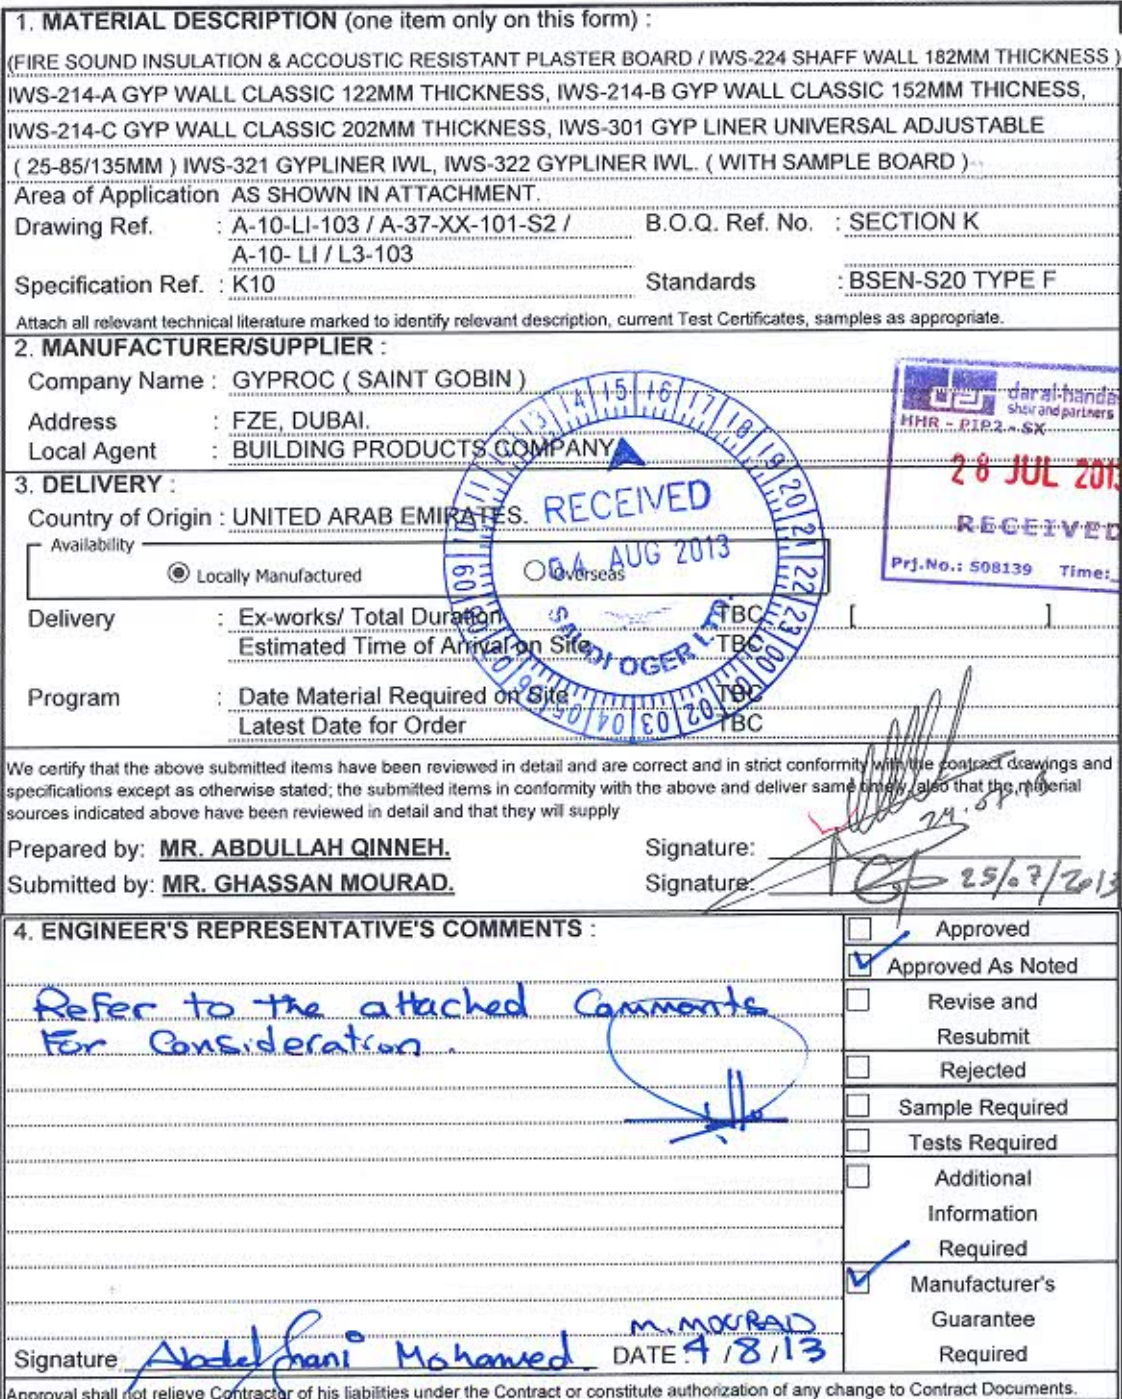 1. MATERIAL DESCRIPTION (one item only on this form) :
(FIRE SOUND INSULATION & ACCOUSTIC RESISTANT PLASTER BOARD / IWS-224 SHAFF WALL 182MM THICKNESS )
IWS-214-A GYP WALL CLASSIC 122MM THICKNESS, IWS-214-B GYP WALL CLASSIC 152MM THICNESS,
IWS-214-C GYP WALL CLASSIC 202MM THICKNESS, IWS-301 GYP LINER UNIVERSAL ADJUSTABLE
( 25-85/135MM ) IWS-321 GYPLINER IWL, IWS-322 GYPLINER IWL. ( WITH SAMPLE BOARD )
Area of Application AS SHOWN IN ATTACHMENT.
Drawing Ref. : A-10-LI-103 / A-37-XX-101-S2 / B.O.Q. Ref. No. : SECTION K
A-10- LI / L3-103
Specification Ref. : K10 Standards : BSEN-S20 TYPE F
Attach all relevant technical literature marked to identify relevant description, current Test Certificates, samples as appropriate.
2. MANUFACTURER/SUPPLIER :
Company Name : GYPROC ( SAINT GOBIN )
Address : FZE, DUBAI.
Local Agent : BUILDING PRODUCTS COMPANY
dar al-handa
shair and partners
HHR - PIP2 - SX
28 JUL 2013
RECEIVED
Prj.No.: S08139 Time:
3. DELIVERY :
Country of Origin : UNITED ARAB EMIRATES.
Availability
Locally Manufactured Overseas
RECEIVED
04 AUG 2013
SAUDI OGER LTD.
13 14 15 16 17 18 19 20 21 22 23 00 01 02 03 04 05 06 07 08 09 10 11
Delivery : Ex-works/ Total Duration TBC [ ]
Estimated Time of Arrival on Site TBC
Program : Date Material Required on Site TBC
Latest Date for Order TBC
We certify that the above submitted items have been reviewed in detail and are correct and in strict conformity with the contract drawings and
specifications except as otherwise stated; the submitted items in conformity with the above and deliver same timely, also that the material
sources indicated above have been reviewed in detail and that they will supply
Prepared by: MR. ABDULLAH QINNEH. Signature:
Submitted by: MR. GHASSAN MOURAD. Signature: 25/07/2013
4. ENGINEER'S REPRESENTATIVE'S COMMENTS :
Refer to the attached Comments
For Consideration.
Approved
Approved As Noted
Revise and
Resubmit
Rejected
Sample Required
Tests Required
Additional
Information
Required
Manufacturer's
Guarantee
Required
M. MOURAD
Signature Abdelghani Mohamed DATE : 4 / 8 / 13
Approval shall not relieve Contractor of his liabilities under the Contract or constitute authorization of any change to Contract Documents.